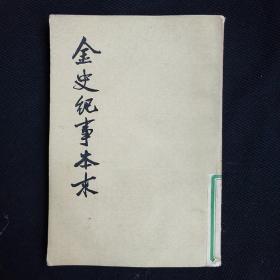 金史紀事本末